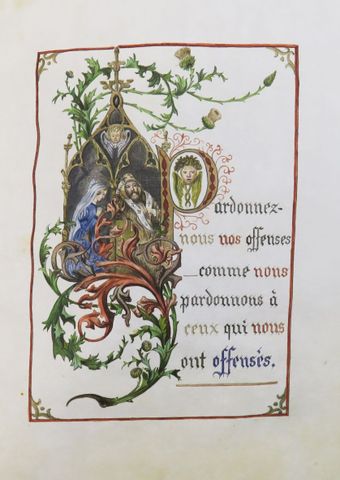 Pardonnez-
nous nos offenses
comme nous
pardonnons à
ceux qui nous
ont offensés.